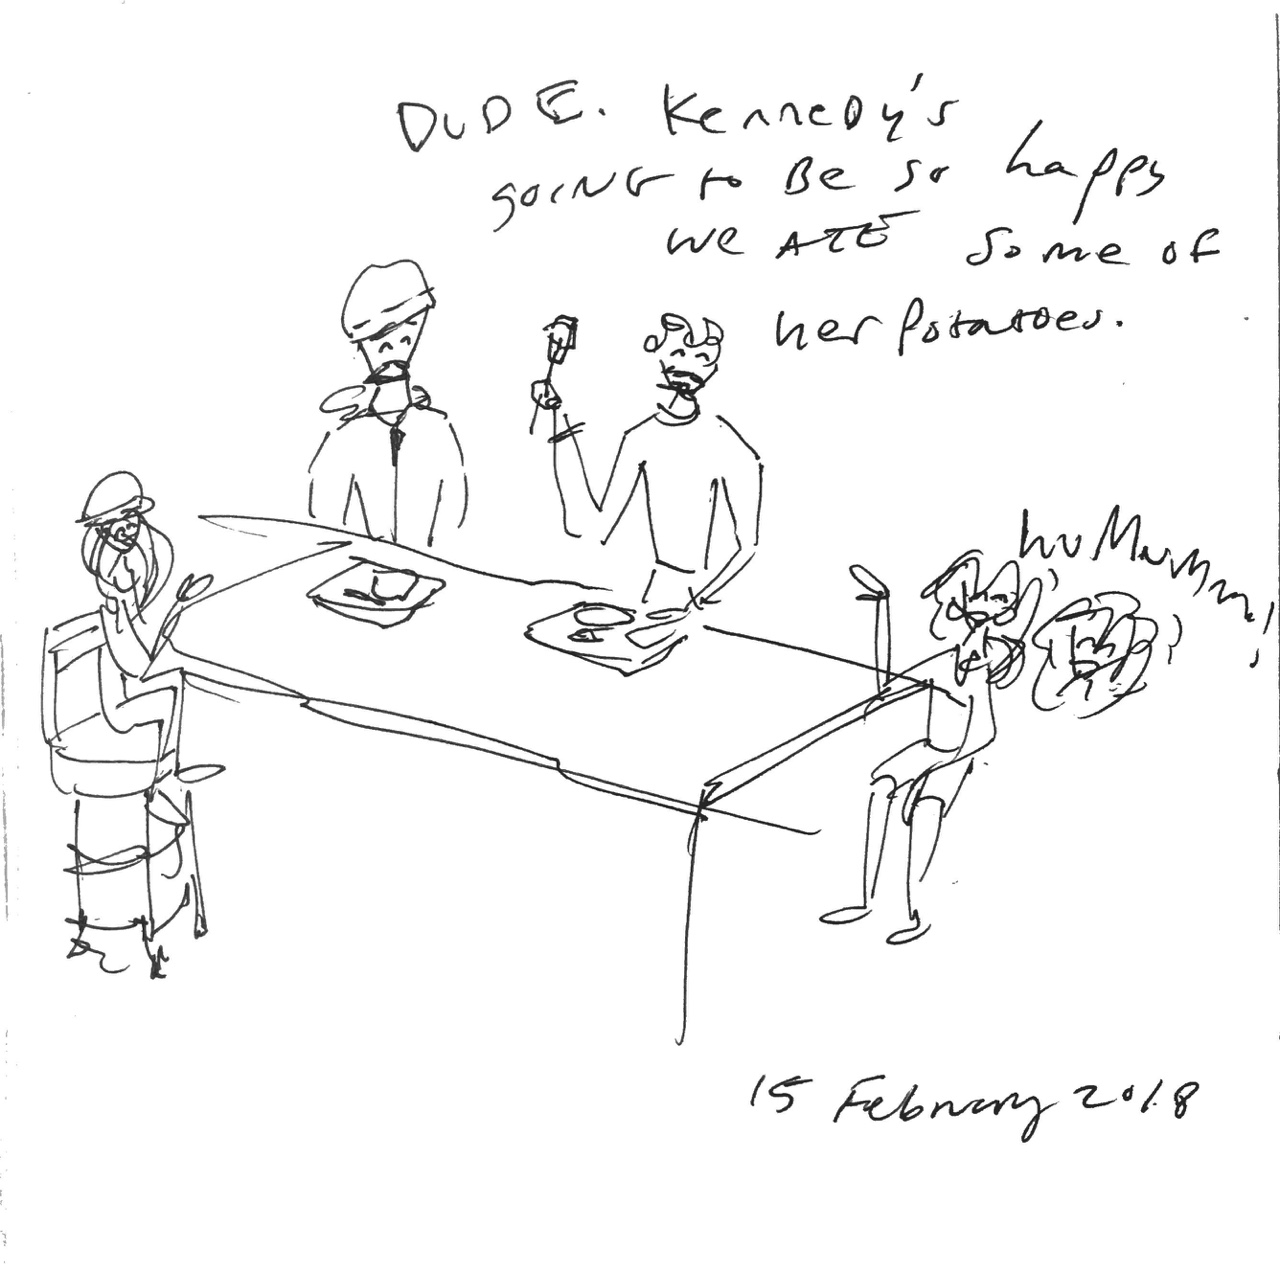 DUDE. Kennedy's
going to Be so happy
we ATE some of
her potatoes.
huMMMMM!
15 February 2018